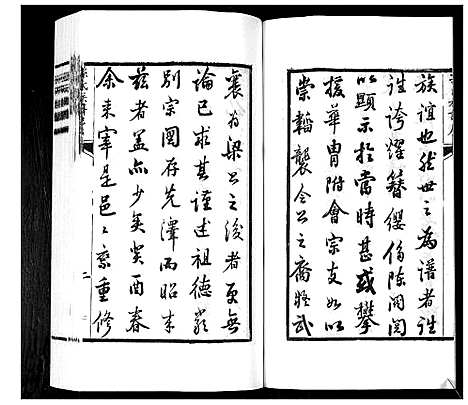 族誼也然世之為譜者誇
誇耀簪纓侈陳閥閱
以顯示於當時甚或攀
援華胄附會宗支如以
崇韜襲令公之裔狄武
襄為梁公之後者更無
論已求其謹述祖德嚴
別宗図存先澤而昭来
茲者盖亦少矣癸酉春
余来宰是邑邑家重修
二